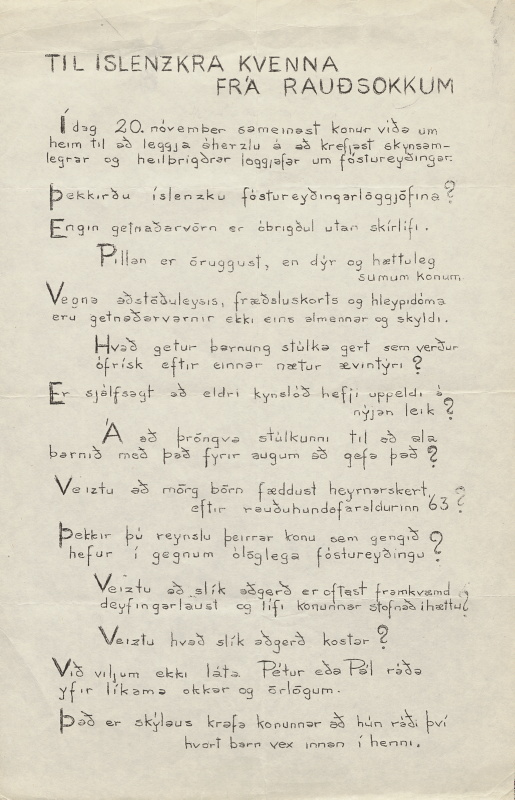 TIL ÍSLENZKRA KVENNA
FRÁ RAUÐSOKKUM
Í dag 20. nóvember sameinast konur víða um
heim til að leggja áherzlu á að krefjast skynsam-
legrar og heilbrigðrar löggjafar um fóstureyðingar.
Þekkirðu íslenzku fóstureyðingarlöggjöfina?
Engin getnaðarvörn er óbrigðul utan skírlífi.
Pillan er öruggust, en dýr og hættuleg
sumum konum
Vegna aðstöðuleysis, fræðsluskorts og hleypidóma
eru getnaðarvarnir ekki eins almennar og skyldi.
Hvað getur barnung stúlka gert sem verður
ófrísk eftir einnar nætur ævintýri?
Er sjálfsagt að eldri kynslóð hefji uppeldi á
nýjan leik?
Á að þröngva stúlkunni til að ala
barnið með það fyrir augum að gefa það?
Veiztu að mörg börn fæddust heyrnarskert,
eftir rauðuhundafaraldurinn '63?
Þekkir þú reynslu þeirrar konu sem gengið
hefur í gegnum ólöglega fóstureyðingu?
Veiztu að slík aðgerð er oftast framkvæmd
deyfingarlaust og lífi konunnar stofnað í hættu?
Veiztu hvað slík aðgerð kostar?
Við viljum ekki láta Pétur eða Pál ráða
yfir líkama okkar og örlögum.
Það er skýlaus krafa konunnar að hún ráði því
hvort barn vex innan í henni.